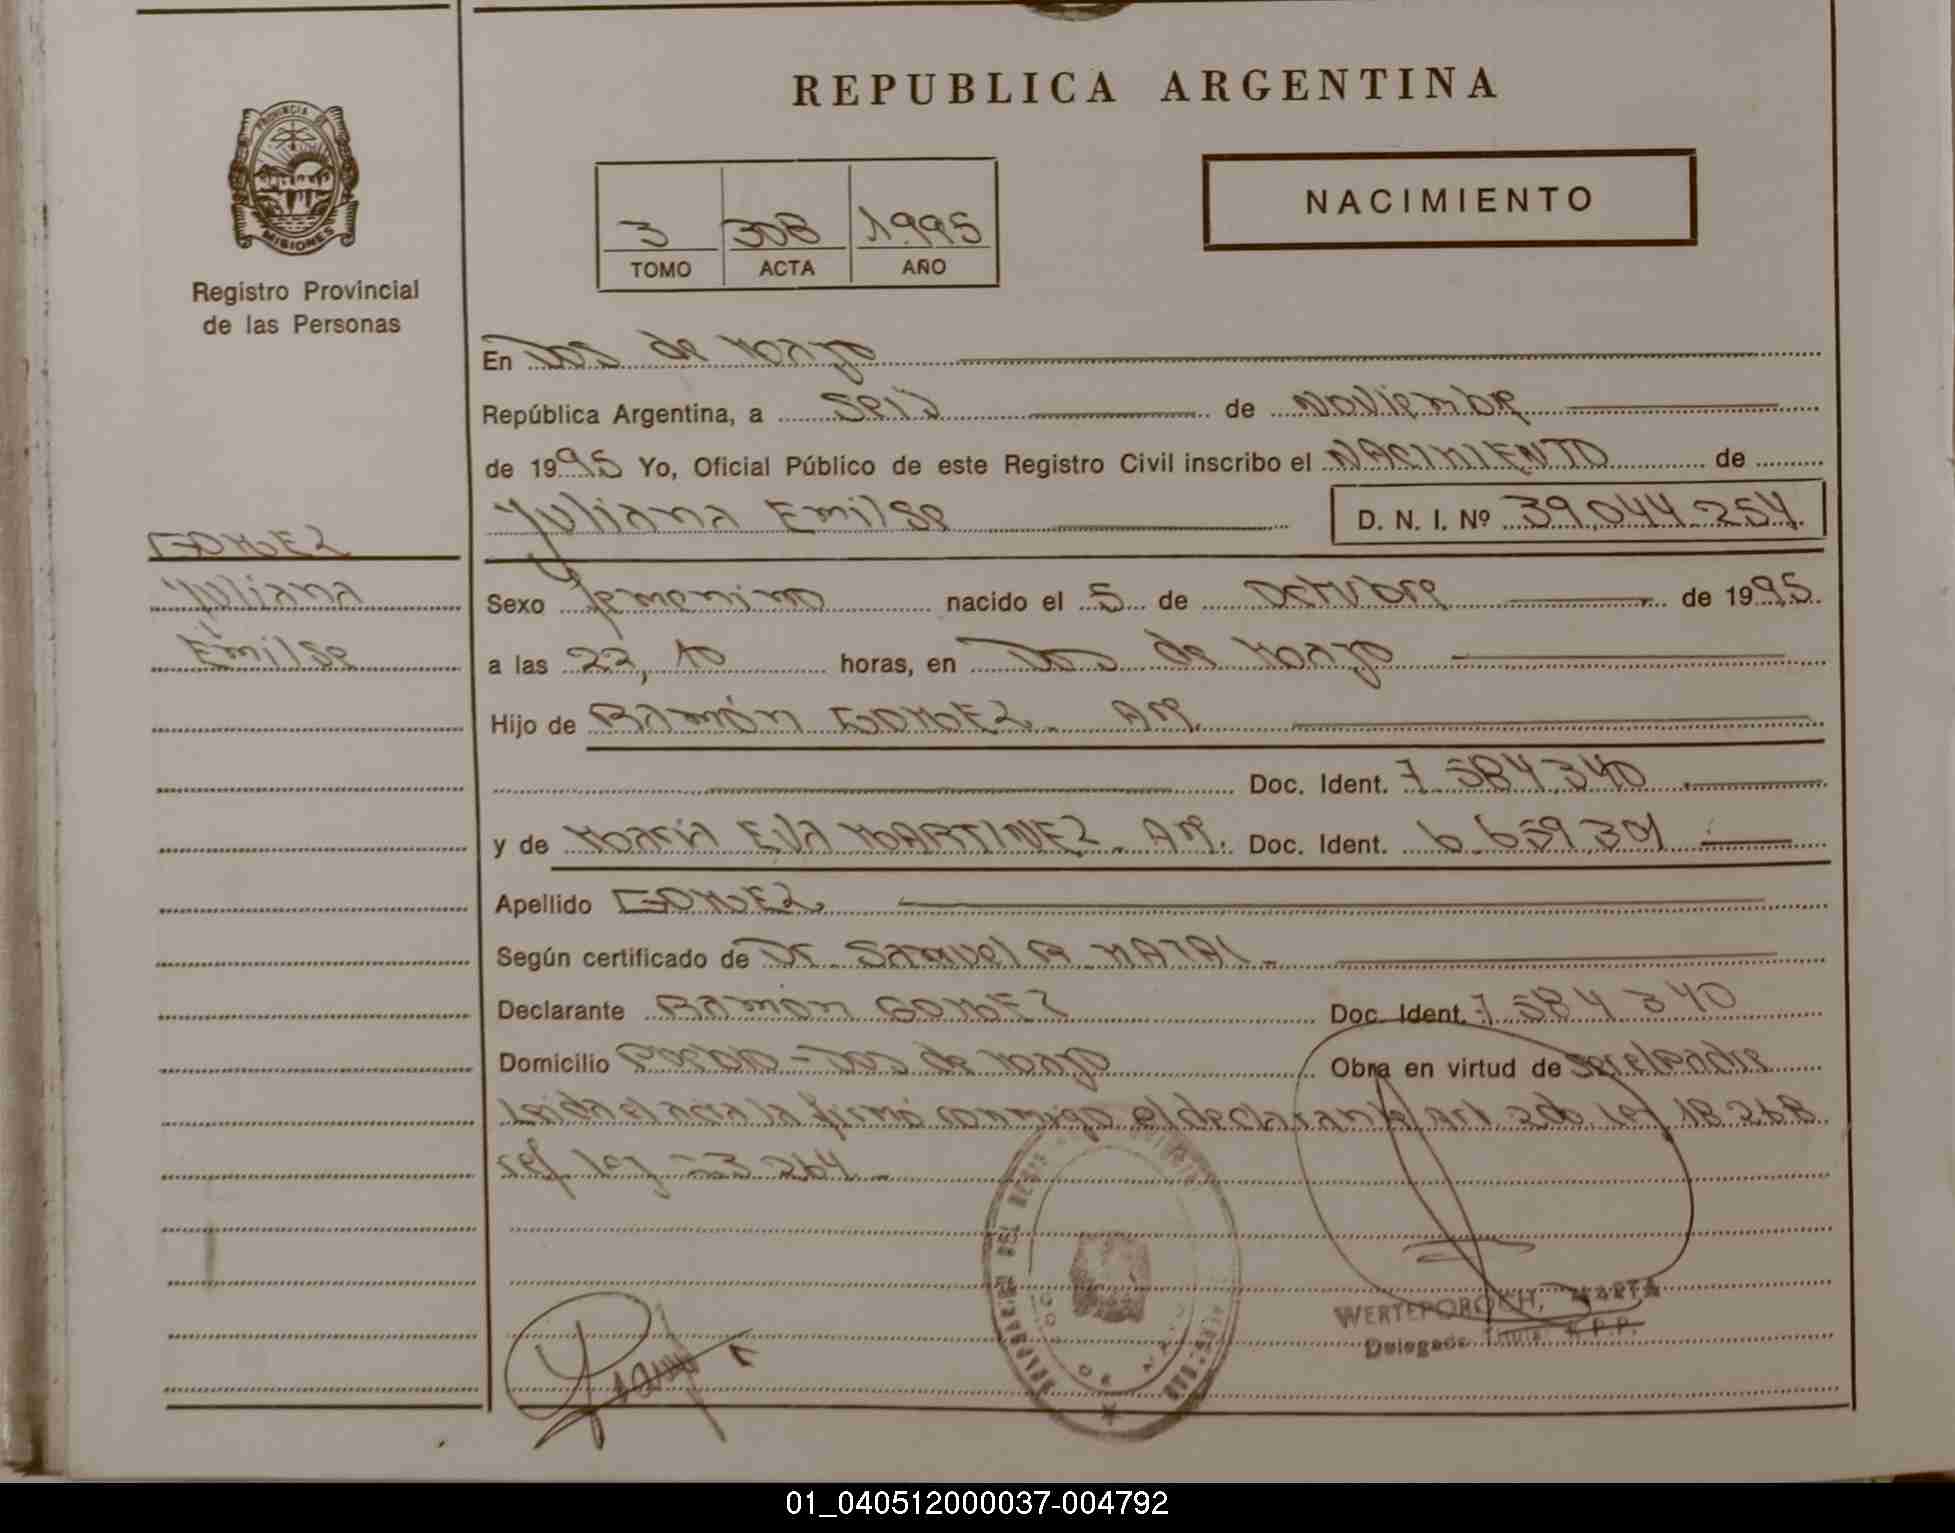 REPUBLICA ARGENTINA
PROVINCIA DE
MISIONES
Registro Provincial
de las Personas
3 308 1995
TOMO ACTA AÑO
NACIMIENTO
En Dos de Mayo
República Argentina, a Seis de Noviembre
de 1995 Yo, Oficial Público de este Registro Civil inscribo el NACIMIENTO de
Yuliana Emilse D. N. I. Nº 39.044.254.
GOMEZ
Yuliana
Emilse
Sexo femenino nacido el 5 de Octubre de 1995.
a las 22,10 horas, en Dos de Mayo
Hijo de Ramón GOMEZ. Ar.
Doc. Ident. 7.584.340
y de María Eva MARTINEZ. Ar. Doc. Ident. 6.659.301
Apellido GOMEZ
Según certificado de Dr.
Declarante Ramón GOMEZ Doc. Ident. 7.584.340
Domicilio Pueblo - Dos de Mayo Obra en virtud de ser el padre
Leida el acta la firmó conmigo el declarante art. 2do. ley 18.268
ref. ley 23.264
WERTEPOROCH, MARTA
Delegada Titular R.P.P.
01_040512000037-004792